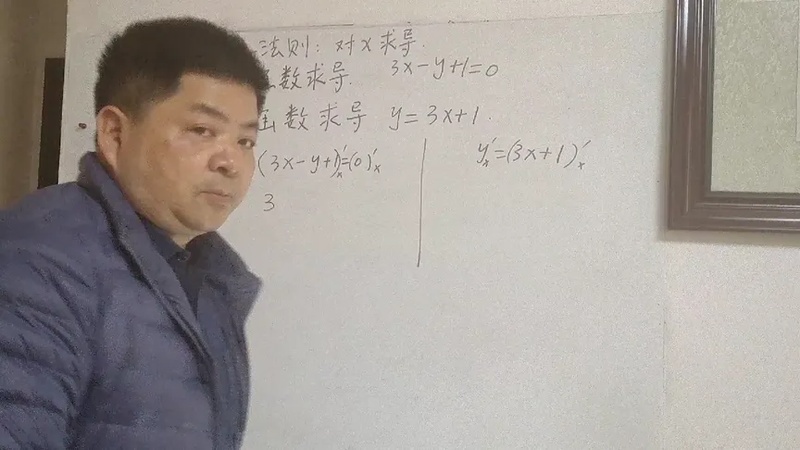 法则：对x求导.
函数求导. 3x-y+1=0
函数求导 y=3x+1.
(3x-y+1)'ₓ=(0)'ₓ
y'ₓ=(3x+1)'ₓ
3